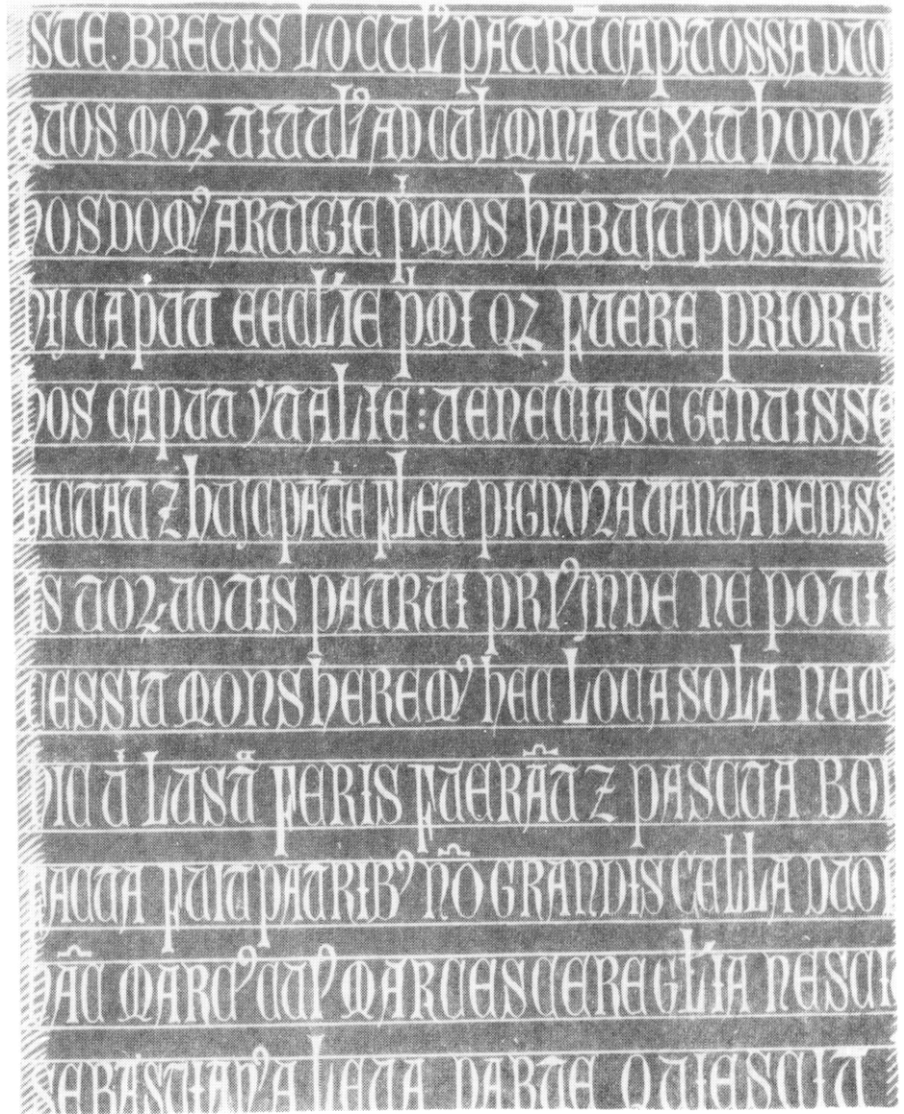 ISTE BREVIS LOCUL' PATRU CAPIT OSSA DUO
QUOS MOꝜ TITUL' AD CULMINA VEXIT HONO
HOS DOM' ARTIGIE PMOS HABUIT POSITORE
HIJ CAPUT ECCLIE PMI QZ FUERE PRIORE
HOS CAPUT YTALIE : VENECIA SE GENUISSE
IACTAT Z HUIC PATIE FLET PIGNORA TANTA DEDISS
IS VOTIS PATRUI PRI' INDE NEPOTIS
CESSIT MONS HEREM' HEC LOCA SOLA NEM
HIC U LUSTA FERIS FUERĀT Z PASCUA BO
FACTA FUIT PATRIB' NŌ GRANDIS CELLA DUO
HĀC MARC' CUI' MARCESCERE GLIA NESCI
SEBASTIAN' A LEVA PARTE QUIESCIT